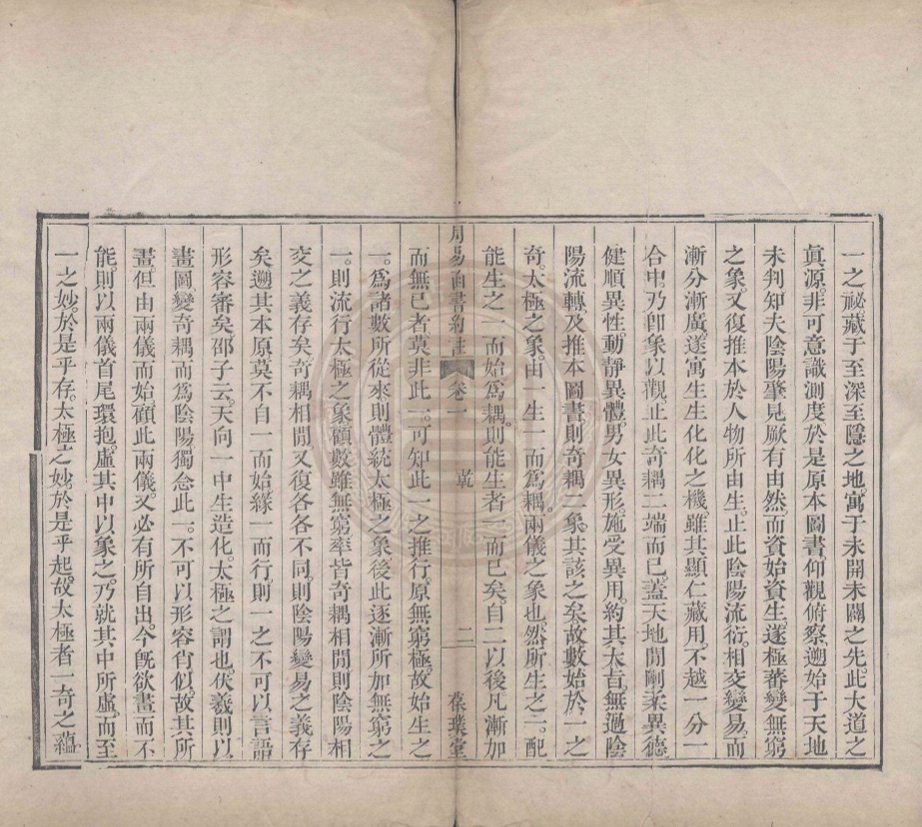 一之祕藏于至深至隱之地寓于未開未闢之先此大道之
眞源。非可意識測度於是原本圖書。仰觀俯察遡始于天地
未判知夫陰陽肇見厥有由然。而資始資生。遂極蕃變無窮
之象。又復推本於人物所由生。止此陰陽流衍。相交變易。而
漸分漸廣。遂寓生生化化之機雖其顯仁藏用。不越一分一
合中。乃卽象以觀。止此奇耦二端而已。蓋天地閒剛柔異德
健順異性。動靜異體。男女異形。施受異用。約其大旨。無過陰
陽流轉。及推本圖書。則奇耦二象。其該之矣。故數始於一之
奇。太極之象。由一生一而爲耦。兩儀之象也。然所生之二。配
能生之一而始爲耦。則能生者一而已矣。自二以後凡漸加
周易函書約註 卷一 乾 二 葆璞堂
而無已者莫非此一。可知此一之推行。原無窮極。故始生之
一。爲諸數所從來。則體統太極之象。後此逐漸所加無窮之
一。則流行太極之象。顧數雖無窮。率皆奇耦相閒。則陰陽相
交之義存矣。奇耦相閒又復各各不同。則陰陽變易之義存
矣。遡其本原莫不自一而始。緣一而行。則一之不可以言語
形容審矣。邵子云。天向一中生造化。太極之謂也。伏羲則以
畫圖。變奇耦而爲陰陽。獨念此一。不可以形容肖似。故其所
畫。但由兩儀而始。顧此兩儀。又必有所自出。今旣欲畫而不
能。則以兩儀首尾環抱。虛其中以象之。乃就其中所虛。而至
一之妙。於是乎存。太極之妙於是乎起。故太極者一奇之蘊